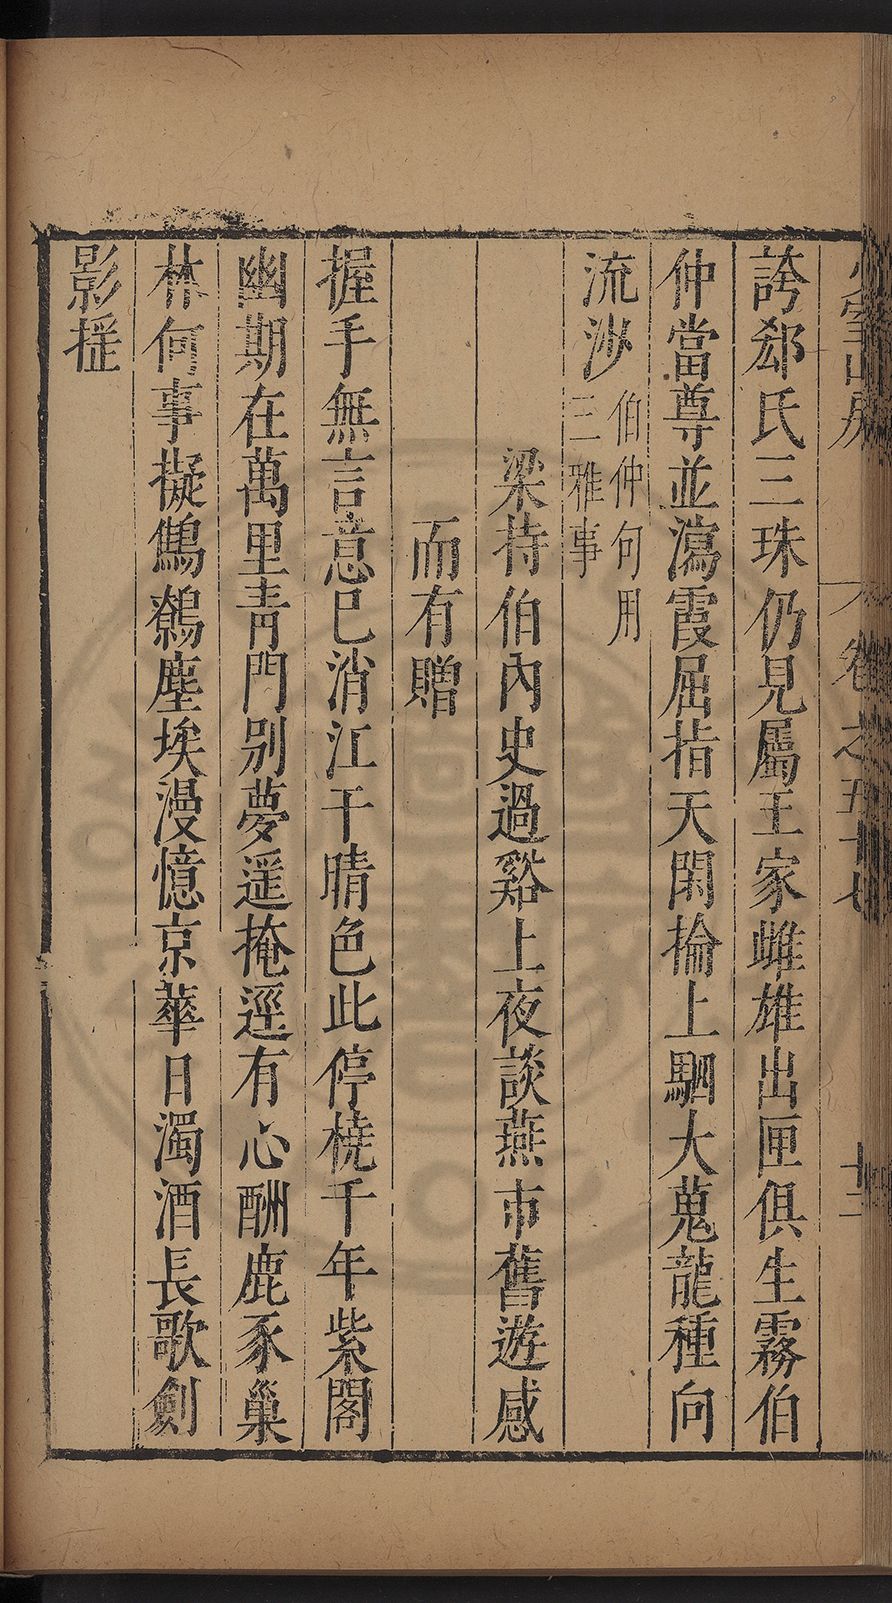 誇郄氏三珠仍見屬王家雌雄出匣俱生霧伯
仲當尊並瀉霞屈指天閑掄上駟大蒐龍種向
流沙伯仲句用
三雅事
梁持伯內史過谿上夜談燕市舊遊感
而有贈
握手無言意已消江干晴色此停橈千年紫閣
幽期在萬里青門別夢遥掩逕有心酬鹿豕巢
林何事擬鷦鷯塵埃漫憶京華日濁酒長歌劍
影摇
卷之五十七
十二